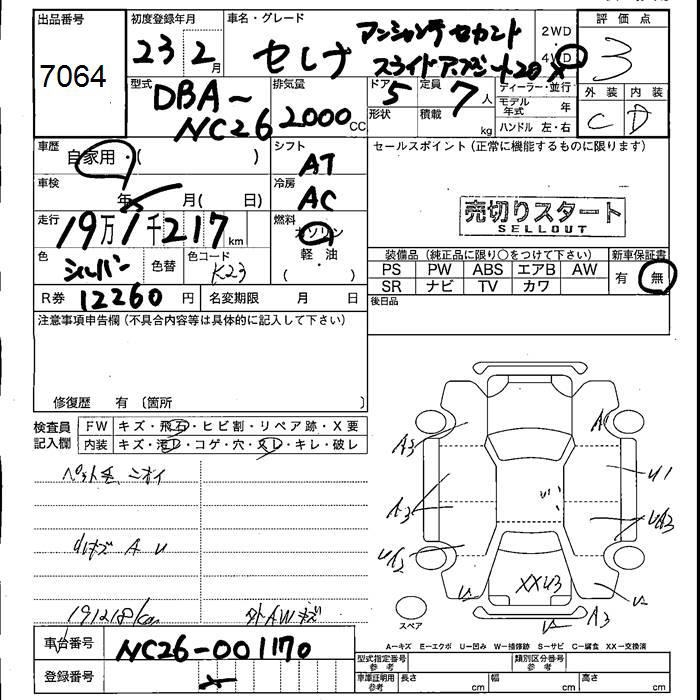 出品番号 初度登録年月 車名・グレード 評価点
7064 23年 2月 セレナ アンシャンテ セカンド
スライドアップシート20X 2WD 4WD 3
型式 DBA- NC26 排気量 2000CC ドア 5 形状 定員 7人 積載 kg ディーラー・並行 モデル年式 年 ハンドル 左・右 外装 C 内装 D
車歴 自家用・( ) シフト AT セールスポイント(正常に機能するものに限ります)
車検 年 月( 日) 冷房 AC
走行 19万1千217km 燃料 ガソリン 軽・油 ( )
売切りスタート
SELLOUT
色 シルバー 色替 色コード K23
装備品(純正品に限り○をつけて下さい) 新車保証書
PS PW ABS エアB AW 有 無
SR ナビ TV カワ
R券 12260円 名変期限 月 日 後日品
注意事項申告欄(不具合内容等は具体的に記入して下さい)
修復歴 有 〔箇所 〕
検査員記入欄 FW キズ・飛石・ヒビ割・リペア跡・X要
内装 キズ・汚レ・コゲ・穴・スレ・キレ・破レ
ペット毛、ニオイ
小キズ A U
191218km 外AWキズ
A3 A U1
A3 UA3
UA2 U XXU3 U
U A3
スペア
A-キズ E-エクボ U-凹み W-補修跡 S-サビ C-腐食 XX-交換済
車台番号 NC26-001170
登録番号
型式指定番号 参考 類別区分番号 参考
車庫証明用 参考 長さ cm 幅 cm 高さ cm